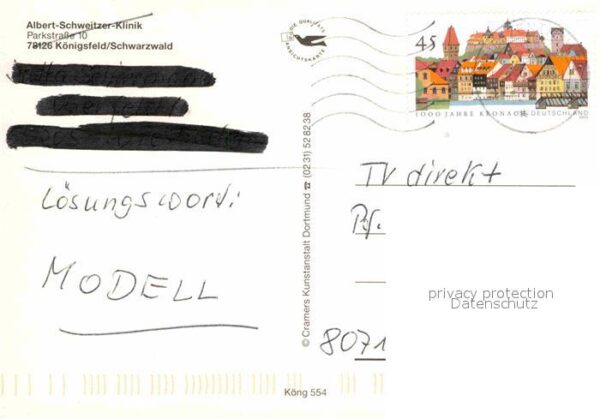 Albert-Schweitzer-Klinik
Parkstraße 10
78126 Königsfeld/Schwarzwald
Lösungswort:
MODELL
© Cramers Kunstanstalt Dortmund ☎ (0231) 528238
DIE QUALITÄTS
ANSICHTSKARTE
45
1000 JAHRE KRONACH
DEUTSCHLAND
TV direkt
Pf.
privacy protection
Datenschutz
8071
Köng 554